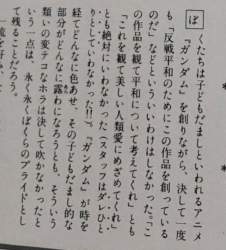 ぼ
くたちは子どもだましといわれるアニメ
『ガンダム』を創りながら、決して一度
も「反戦平和のためにこの作品を創っている
のだ」などといういいわけはしなかった。「こ
の作品を観て平和について考えてくれ」とも
「これを観て美しい人類愛にめざめてくれ」
とも絶対にいわなかった(スタッフはダレひと
りとしていわなかった!!)。『ガンダム』が時を
経てどんなに色あせ、その子どもだまし的な
部分がどんなに露わになろうとも、そういう
類いの変テコなホラは決して吹かなかったと
いう一点は、永く永くぼくらのプライドとし
て残ることだろう。